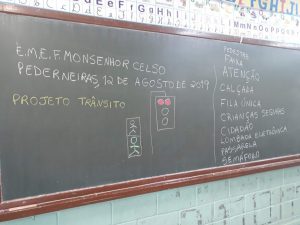 E.M.E.F. MONSENHOR CELSO
PEDERNEIRAS, 12 DE AGOSTO DE 2019
PROJETO TRÂNSITO
PEDESTRE
FAIXA
ATENÇÃO
CALÇADA
FILA ÚNICA
CRIANÇAS SEGURAS
CIDADÃO
LOMBADA ELETRÔNICA
PASSARELA
SEMÁFORO